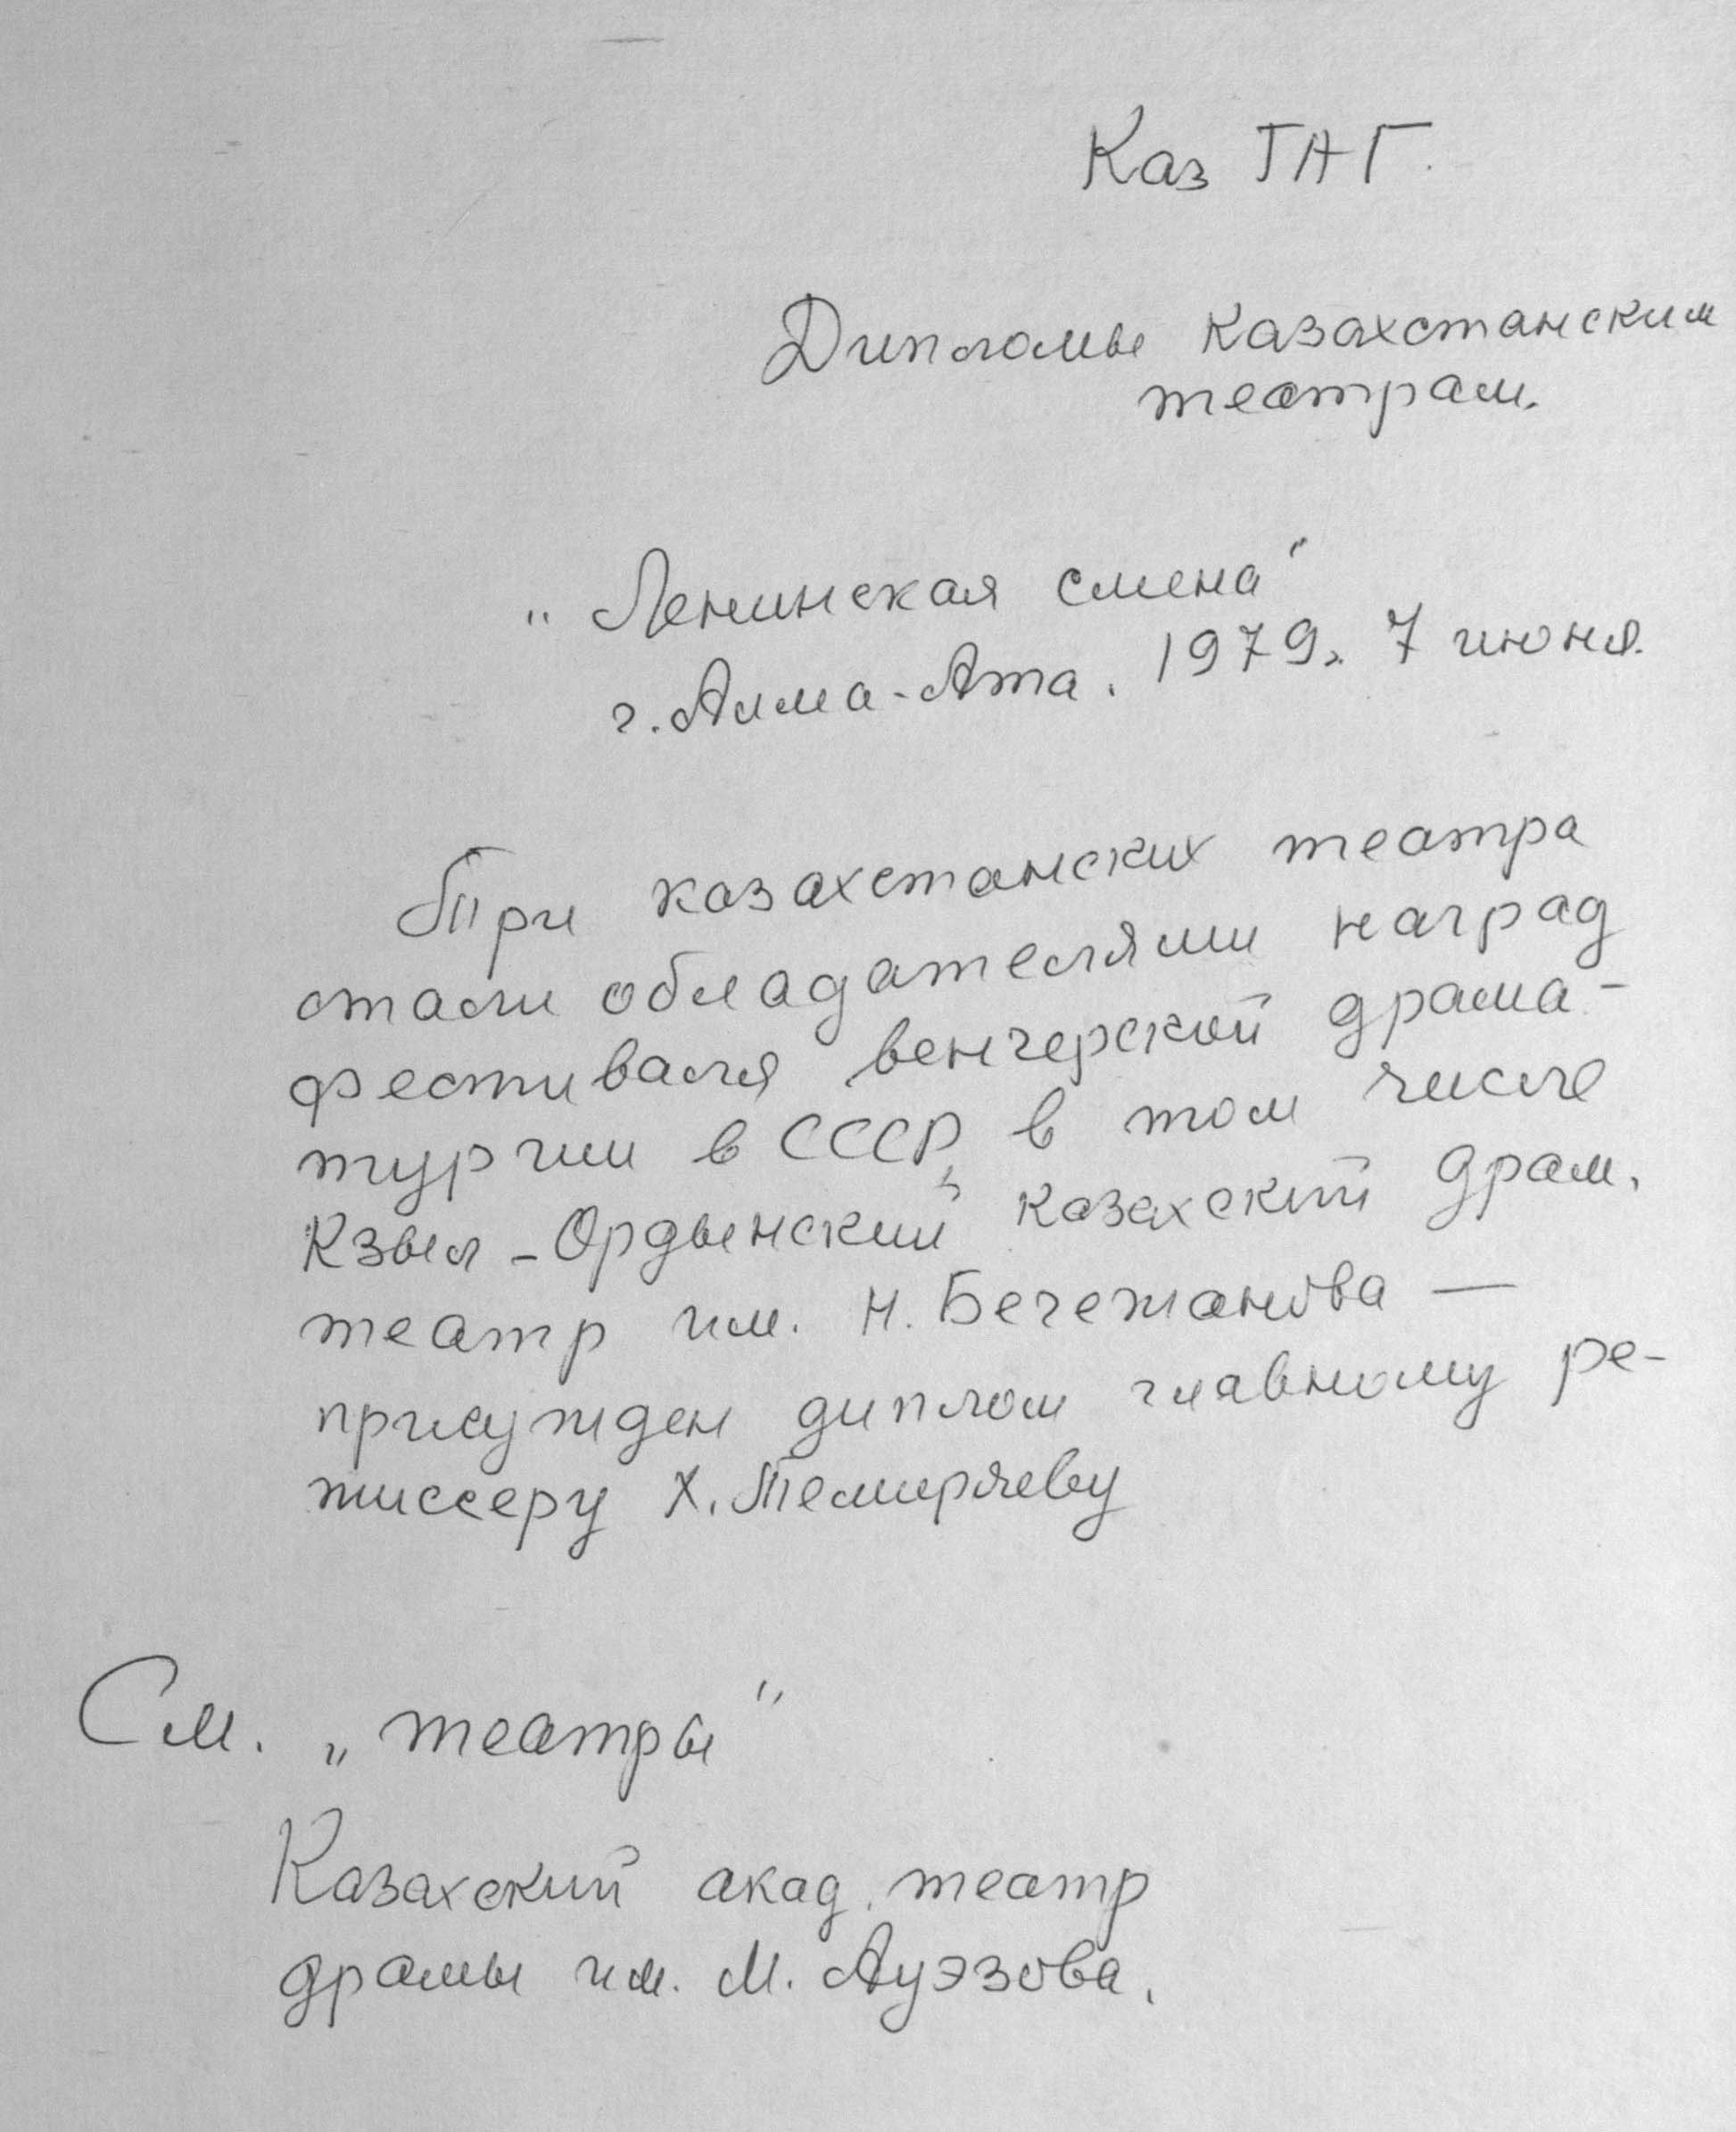 Каз ТАГ.
Дипломы казахстанским
театрам.
"Ленинская смена"
г. Алма-Ата. 1979г. 7 июня.
Три казахстанских театра
стали обладателями наград
фестиваля венгерской драма-
тургии в СССР, в том числе
Кзыл-Ордынский казахский драм.
театр им. Н. Бечежанова —
присужден диплом главному ре-
жиссеру Х. Темиряеву
См. „театры"
Казахский акад. театр
драмы им. М. Ауэзова.